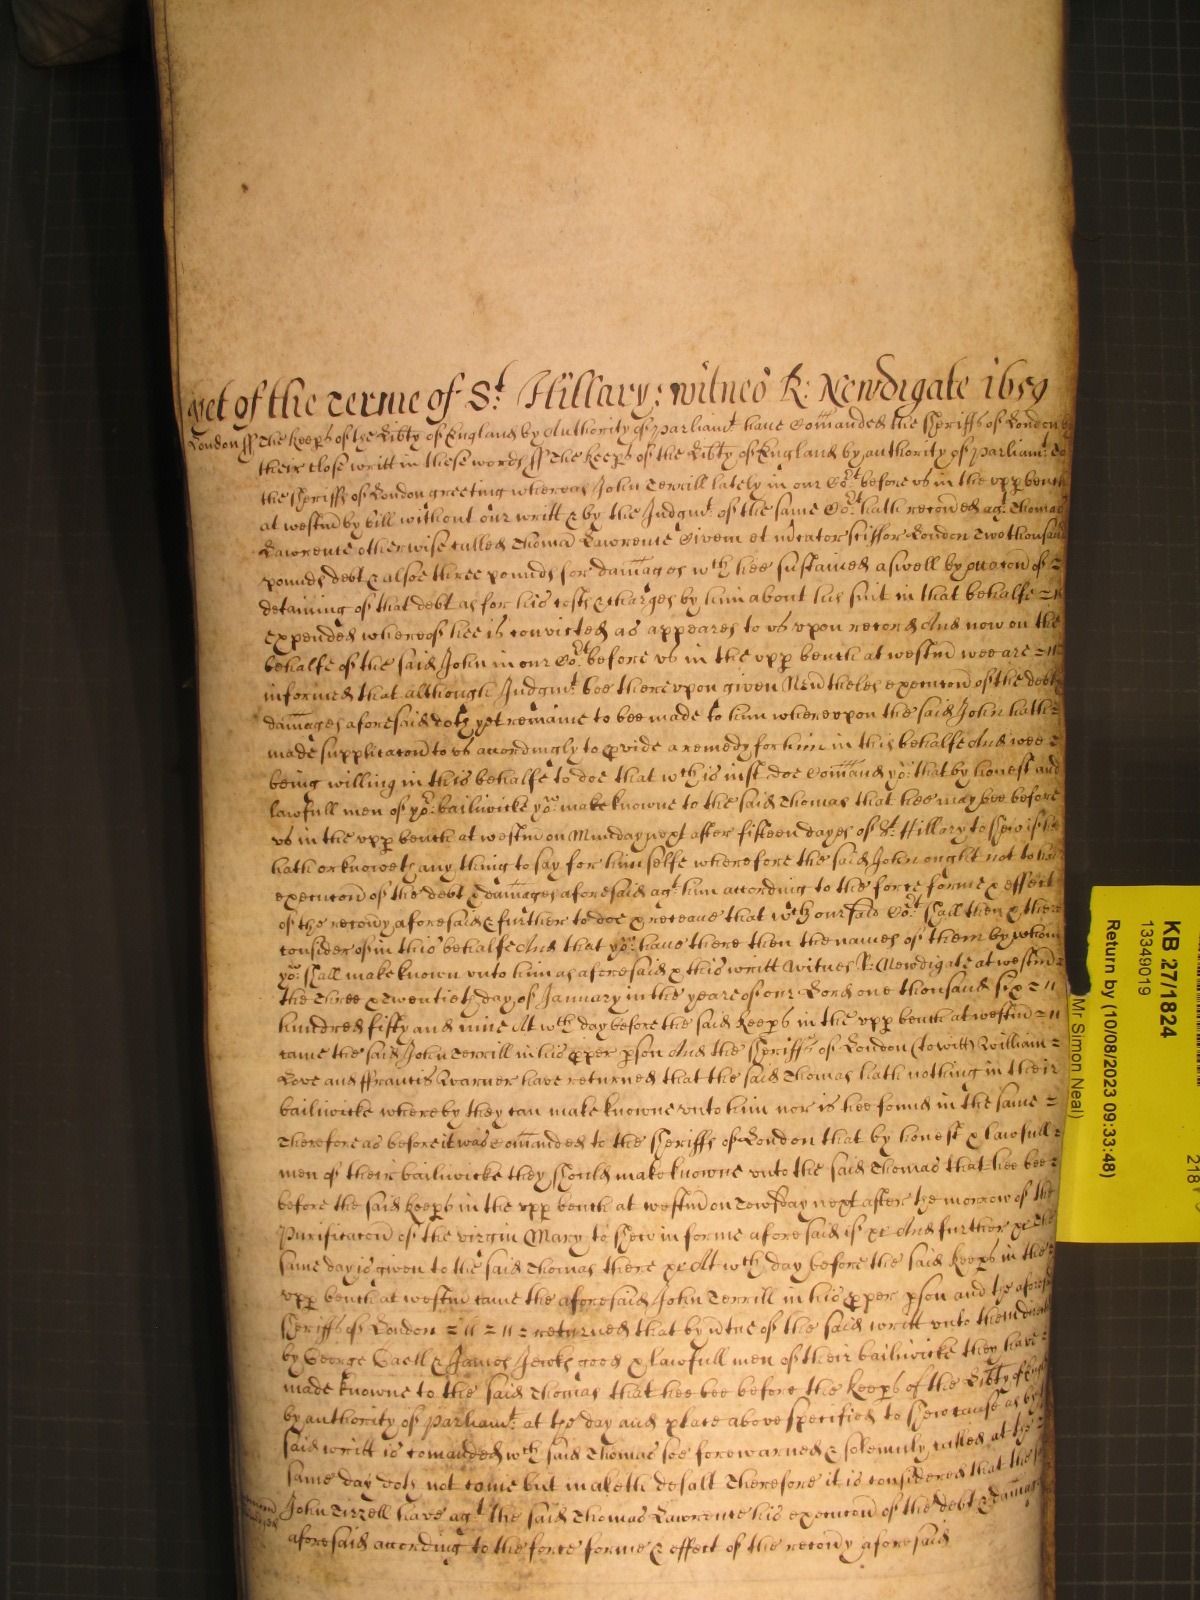 yet of the Terme of St. Hillary: witnes R: Newdigate 1659
London ss The keeps of the Libty of England by Authority of Parliamt. have Comanded the Sheriffs of London by
their close writt in these words ss The keeps of the Libty of England by authority of Parliamt. To
the Sheriffs of London greeting whereas John Terrill lately in our Cort. before us in the upp bench
at westmr by bill without our writt & by the Judgmt. of the same Cort. hath recoved agt. Thomas
Lawrence otherwise called Thomam Lawrence Civem et London Two thousand
pounds debt & alsoe three pounds for damages wch hee sustained aswell by occacon of =
detaining of that debt as for his costs & charges by him about his suit in that behalfe =
expended whereof hee is convicted as appeares to us upon record And now on the
behalfe of the said John in our Cort. before us in the upp bench at westmr wee are =
informed that although Judgmt. bee thereupon given Nevtheles execucon of the debt &
damages aforesaid doth yet remaine to bee made to him whereupon the said John hath =
made supplicacon to us accordingly to pvide a remedy for him in this behalfe And wee =
being willing in this behalfe to doe that wch is just doe Comand you: that by honest and
lawfull men of yor. bailiwicke you: make knowne to the said Thomas that hee may bee before
us in the upp bench at westmr on Munday next after fifteen dayes of St. Hillary to shew if he
hath or knoweth any thing to say for himselfe wherefore the said John ought not to have
execucon of the debt & damages aforesaid agt. him according to the force forme & effect
of the recovy aforesaid & further to doe & receave that wch our said Cort. shall then & there
consider of in this behalfe And that you: have there then the names of them by whom
you: shall make known unto him as aforesaid & this writt Witnes R: Newdigate at westmr
the three & Twentieth day of January in the yeare of our Lord one thousand six =
hundred fifty and nine At wch day before the said keeps in the upp bench at westmr =
came the said John Terrill in his pper pson And the Sheriffs of London (to witt) William =
Love and ffrancis Warner have returned that the said Thomas hath nothing in their
bailiwicke whereby they can make knowne unto him nor is hee found in the same =
Therefore as before it was comanded to the Sheriffs of London that by honest & lawfull =
men of their bailiwicke they should make knowne unto the said Thomas that hee bee =
before the said keeps in the upp bench at westmr on Tewsday next after the morrow of the
Purificacon of the virgin Mary to shew in forme aforesaid if &c And further &c The
same day is given to the said Thomas there &c At wch day before the said keeps in the
upp bench at westmr came the aforesaid John Terrill in his pper pson and the aforesd
Sheriffs of London = returned that by vtue of the said writt unto them directed
by George & James Jewks good & lawfull men of their bailiwicke they have =
made knowne to the said Thomas that hee bee before the keeps of the Libty of Engl
by authority of Parliamt. at the day and place above specified to shew cause as by
said writt is comanded wch said Thomas soe forewarned & solemnly called at the
same day doth not come but maketh defalt Therefore it is considered that the sd
John Tirrell have agt. the said Thomas Lawrence his execucon of the debt & damages
aforesaid according to the force forme & effect of the recovy aforesaid
KB 27/1824
13349019
Return by (10/08/2023 09:33:48)
Mr Simon Neal)